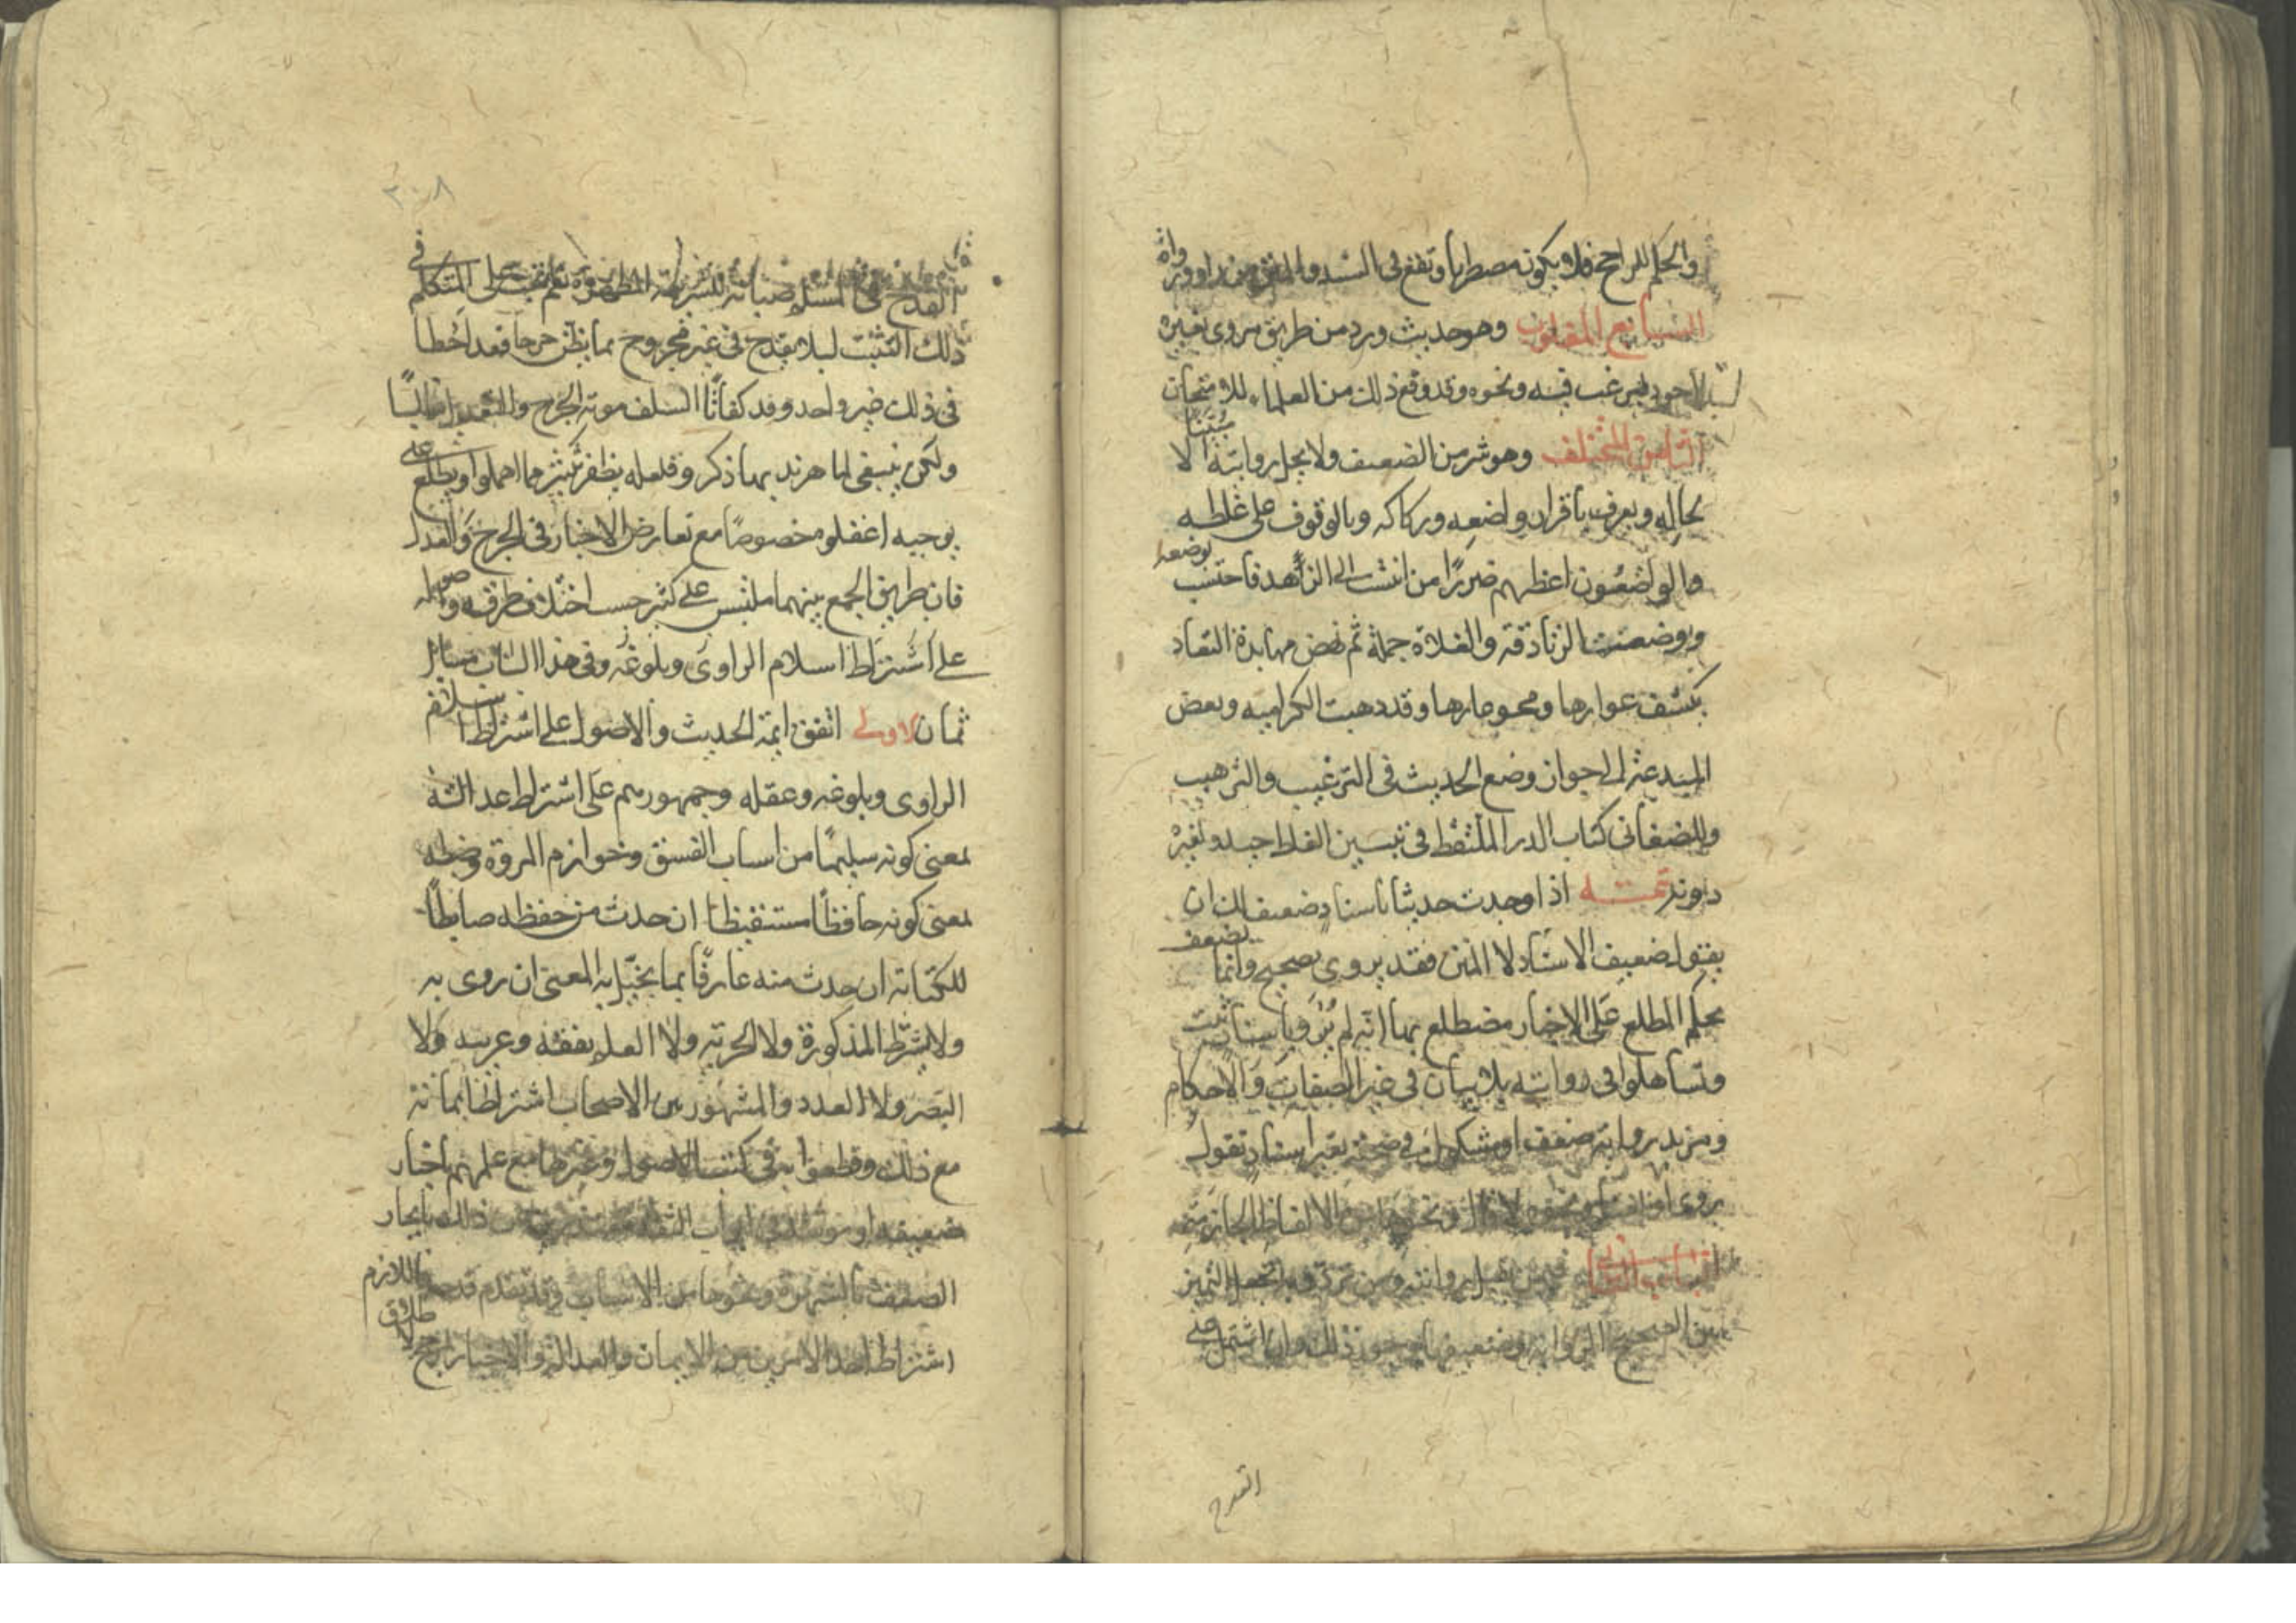 والحكم للراجح فلا يكون مضطربا وتقع في السند والمتن من راو ورواة
السابع المقلوب وهو حديث ورد من طريق يروى بغيره
اجود ليرغب فيه ونحوه وقد وقع ذلك من العلماء للامتحان
الثامن المختلف وهو شر من الضعيف ولا يحل روايته الا مبينا
لحاله ويعرف باقرار واضعه وركاكه وبالوقوف على غلطه
والواضعون اعظمهم ضررا من انتسب الى الزهد فاحتسب بوضعه
ووضعت الزنادقة والغلاة جملة ثم نهض جهابذة النقاد
بكشف عوارها ومحو عارها وقد ذهبت الكرامية وبعض
المبتدعة الى جواز وضع الحديث في الترغيب والترهيب
وللصغاني كتاب الدر الملتقط في تبيين الغلط جيد ولغيره
دونه تتمة اذا وجدت حديثا باسناد ضعيف لك ان
يقول ضعيف الاسناد لا المتن فقد يروى بصحيح وانما يضعف
بحكم المطلع على الاخبار مضطلع بها انه لم يرو باسناد يثبت
وتساهلوا في روايته بلا بيان في غير الصفات والاحكام
ومريد رواية ضعيف او مشكوك في صحته بغير اسناد تقول
روى او بلغنا ونحوه لا قال ونحوها من الالفاظ الجازمة
الباب الثاني فيمن تقبل روايته ومن ترد وبه تحصل التمييز
بين الصحيح الرواية وضعيفها وجوز ذلك وان اشتمل على
القدح
٢٠٨
القدح في المسلم صيانة للشريعة المطهرة نعم يجب على المتكلم في
ذلك التثبت ليلا يقدح في غير مجروح بما يظن جرحا فقد اخطا
في ذلك غير واحد وقد كفانا السلف مونة الجرح والتعديل غالبا
ولكن ينبغي للماهر تدبر ما ذكروه فلعله يظفر بكثير مما اهملوا ويطلع على
توجيه اغفلوه خصوصا مع تعارض الاخبار في الجرح والقدح
فان طريق الجمع بينهما ملتبس على كثير حسب اختلاف طرقه واصوله
على اشتراط اسلام الراوى وبلوغه وفي هذا الباب مسائل
ثمان الاولى اتفق ائمة الحديث والاصول على اشتراط اسلام
الراوى وبلوغه وعقله وجمهورهم على اشتراط عدالته
بمعنى كونه سليما من اسباب الفسق وخوارم المروة وضبطه
بمعنى كونه حافظا مستيقظا ان حدث من حفظه ضابطا
لكتابه ان حدث منه عارفا بما يختل به المعنى ان روى به
ولا يشترط المذكورة ولا الحرية ولا العلم بفقه وعربية ولا
البصر ولا العدد والمشهور بين الاصحاب اشتراط ايمانه
مع ذلك وقطعوا به في كتب الاصول وغيرها مع علمهم باخبار
ضعيفة او موثقة في ابواب الفقه معتذرين عن ذلك بانجبار
الضعيف بالشهرة ونحوها من الاسباب وقد تقدم فاللازم
اشتراط احد الامرين من الايمان والعدالة والانجبار لا اطلاق